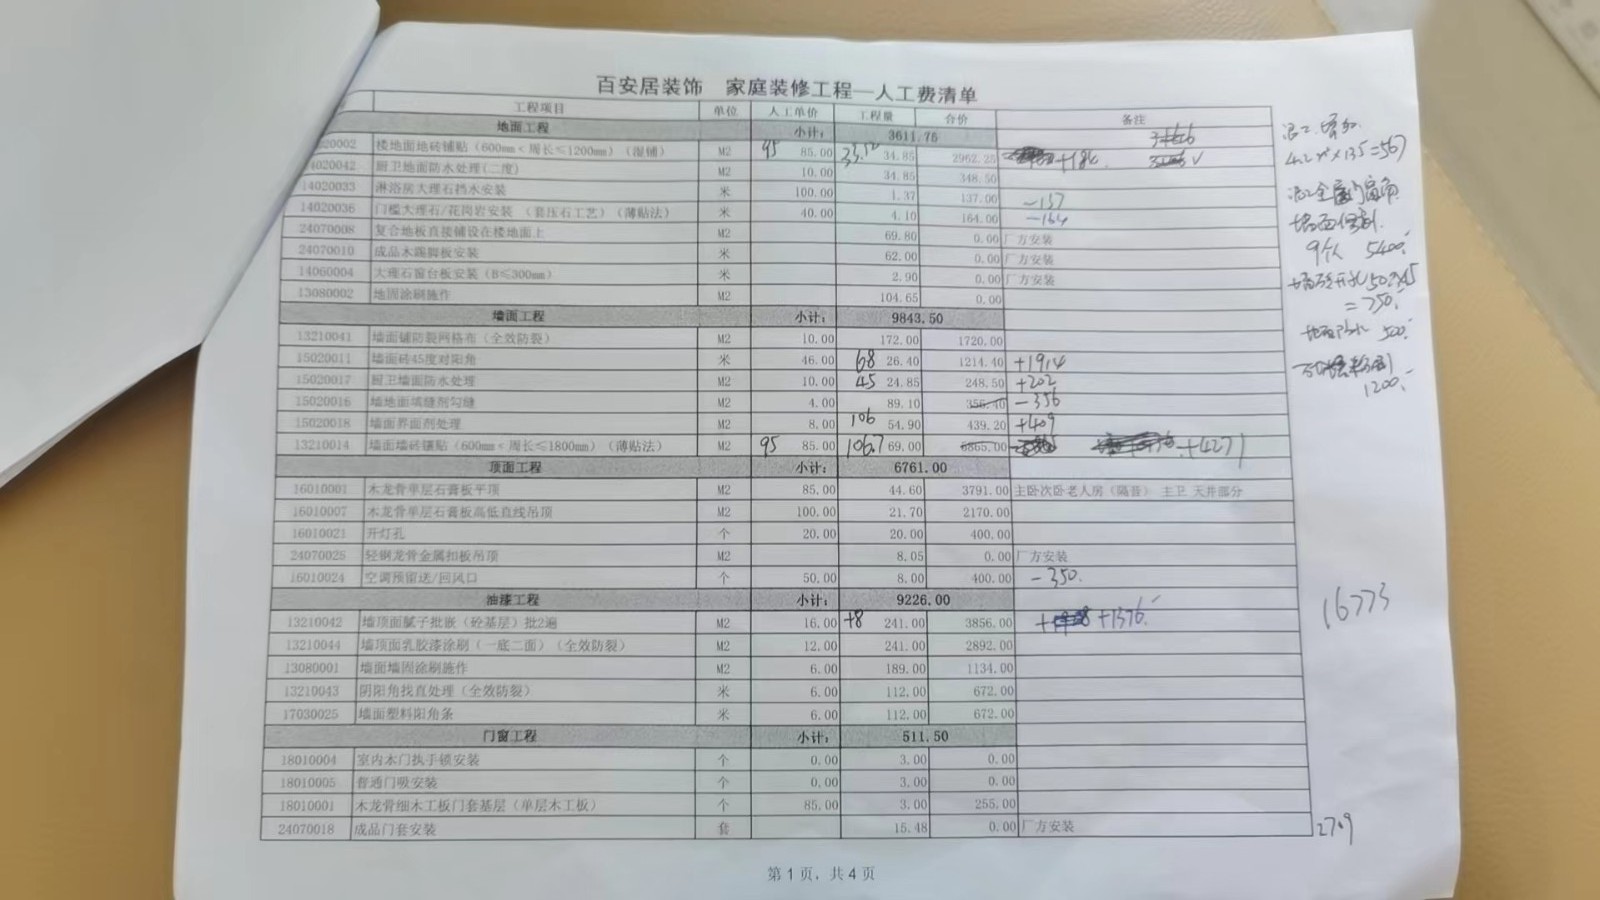 百安居装饰 家庭装修工程—人工费清单
工程项目 单位 人工单价 工程量 合价 备注
地面工程 小计: 3611.75
020002 楼地面地砖铺贴(600mm<周长≤1200mm)(湿铺) M2 95 85.00 34.85 2962.25
14020042 厨卫地面防水处理(二度) M2 10.00 34.85 348.50
14020033 淋浴房大理石挡水安装 米 100.00 1.37 137.00 -137
14020036 门槛大理石/花岗岩安装 (套压石工艺)(薄贴法) 米 40.00 4.10 164.00 -164
24070008 复合地板直接铺设在楼地面上 M2 69.80 0.00 厂方安装
24070010 成品木踢脚板安装 米 62.00 0.00 厂方安装
14060004 大理石窗台板安装(B≤300mm) 米 2.90 0.00 厂方安装
13080002 地固涂刷施作 M2 104.65 0.00
墙面工程 小计: 9843.50
13210041 墙面铺防裂网格布(全效防裂) M2 10.00 172.00 1720.00
15020011 墙面砖45度对阳角 米 46.00 68 26.40 1214.40 +1914
15020017 厨卫墙面防水处理 M2 10.00 45 24.85 248.50 +202
15020016 墙地面填缝剂勾缝 M2 4.00 89.10 356.40 -356
15020018 墙面界面剂处理 M2 8.00 106 54.90 439.20 +409
13210014 墙面墙砖镶贴(600mm<周长≤1800mm)(薄贴法) M2 95 85.00 106.7 69.00 5865.00 +4271
顶面工程 小计: 6761.00
16010001 木龙骨单层石膏板平顶 M2 85.00 44.60 3791.00 主卧次卧老人房(隔音) 主卫 天井部分
16010007 木龙骨单层石膏板高低直线吊顶 M2 100.00 21.70 2170.00
16010021 开灯孔 个 20.00 20.00 400.00
24070025 轻钢龙骨金属扣板吊顶 M2 8.05 0.00 厂方安装
16010024 空调预留送/回风口 个 50.00 8.00 400.00 -350.
油漆工程 小计: 9226.00
13210042 墙顶面腻子批嵌(砼基层)批2遍 M2 16.00 +8 241.00 3856.00 +1376
13210044 墙顶面乳胶漆涂刷(一底二面)(全效防裂) M2 12.00 241.00 2892.00
13080001 墙面墙固涂刷施作 M2 6.00 189.00 1134.00
13210043 阴阳角找直处理(全效防裂) 米 6.00 112.00 672.00
17030025 墙面塑料阳角条 米 6.00 112.00 672.00
门窗工程 小计: 511.50
18010004 室内木门执手锁安装 个 0.00 3.00 0.00
18010005 普通门吸安装 个 0.00 3.00 0.00
18010001 木龙骨细木工板门套基层(单层木工板) 个 85.00 3.00 255.00
24070018 成品门套安装 套 15.48 0.00 厂方安装
第1页,共4页
4.2㎡×135=567
9个 5400.
=750.
500.
1200.
16773
2709